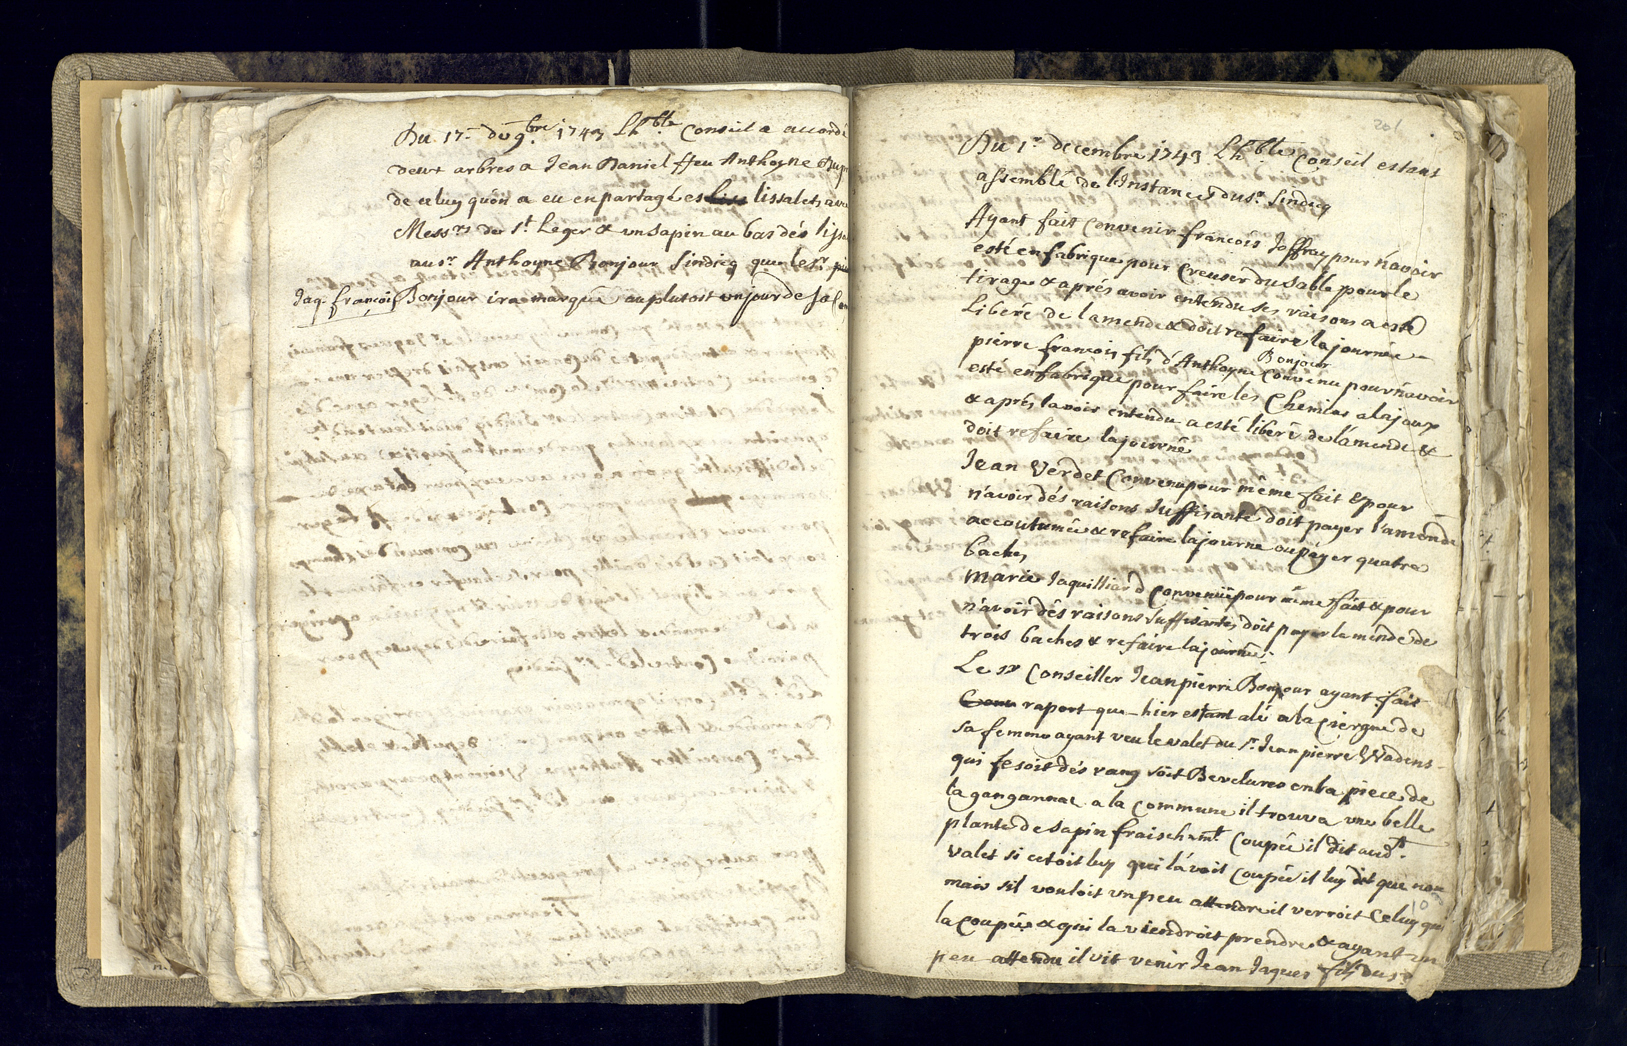 Du 17e du 9bre 1743 Lhble Conseil a accordé
deux arbres a Jean Daniel ffeu Anthoyne
de celuy quön a eu en partage es lissalets avec
Messrs de St Leger & un Sapin au bas dés
au sr Anthoyne Bonjour Sindicq que le sr
Jaq. françois Bonjour ira marque au plutost un jour de
201
Du 1r decembre 1743 Lhble Conseil estant
assemblé de l'Instance du sr Sindicq
Ayant fait Convenir françois Joffray pour n'avoir
esté en fabrique pour Creuser du Sable pour le
tirage & aprés avoir entendu ses raisons a esté
Liberé de lamende & doit refaire la journée
pierre françois fils d'Anthoyne Bonjour Convenu pour n'avoir
esté en fabrique pour faire les Chemins a lajoux
& aprés lavoir entendu a esté liberé de lámende &
doit refaire la journé
Jean Verdet Convenu pour même fait & pour
n'avoir dés raisons Suffisante doit payer l'amende
accoutumée & refaire la journe ou päyer quatre
baches
Marie Jaquilliard Convenuë pour même fait & pour
n'avoir dés raisons Suffisantes doit payer lamende de
trois baches & refaire la journée.
Le sr Conseiller Jean pierre Bonjour ayant fait
raport que hier estant alé a la Ciergne de
sa femme ayant veu le valet du sr Jean pierre Wadens
qui fesoit dés rang söit Bevelures en la piece de
la gangannae a la Commune il trouva une belle
plante de Sapin fraischemt Coupée il dit audt
valet si cetoit luy qui lávoit Coupée il luy dit que non
mais sil vouloit un peu attendre il verroit Celuy qui
la Coupée & qui la viendroit prendre & ayant un
peu attendu il vit venir Jean Jaques fils du sr